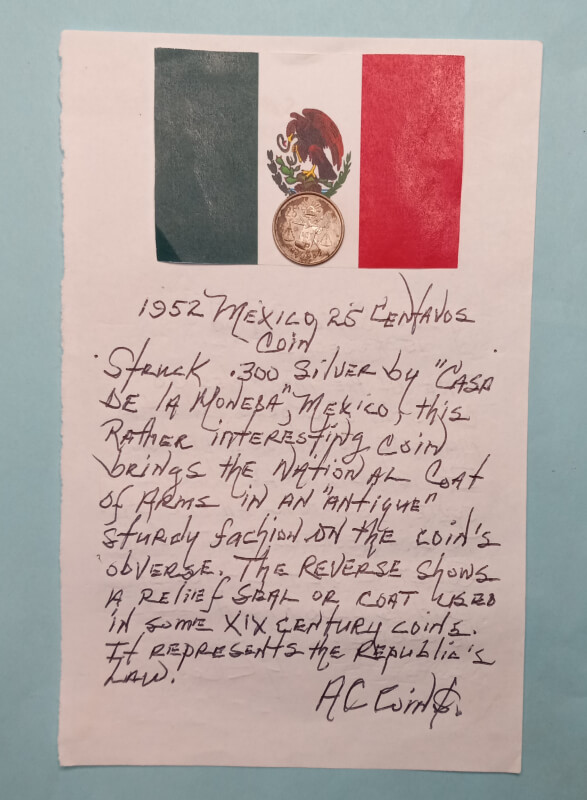 1952 MEXICO 25 CENTAVOS
COIN
STRUCK .300 SILVER by "CASA
DE LA MONEDA", MEXICO, this
RATHER interesting COIN
brings the NATIONAL COAT
of ARMS IN AN "ANTIQUE"
sturdy fachion ON the coin's
obverse. The REVERSE shows
A RELIEF SEAL OR COAT USED
IN some XIX CENTURY COINS.
It REPRESENTS the Republic's
LAW.
AC Coin$.